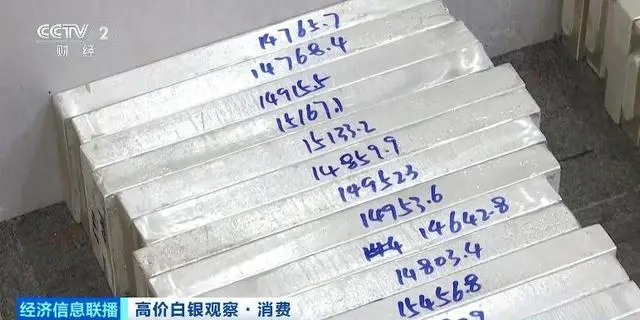 CCTV 2
财经
14765.7
14768.4
14915.5
15167.1
15133.2
14859.9
149523
14953.6
14642.8
14803.4
154568
经济信息联播
高价白银观察·消费